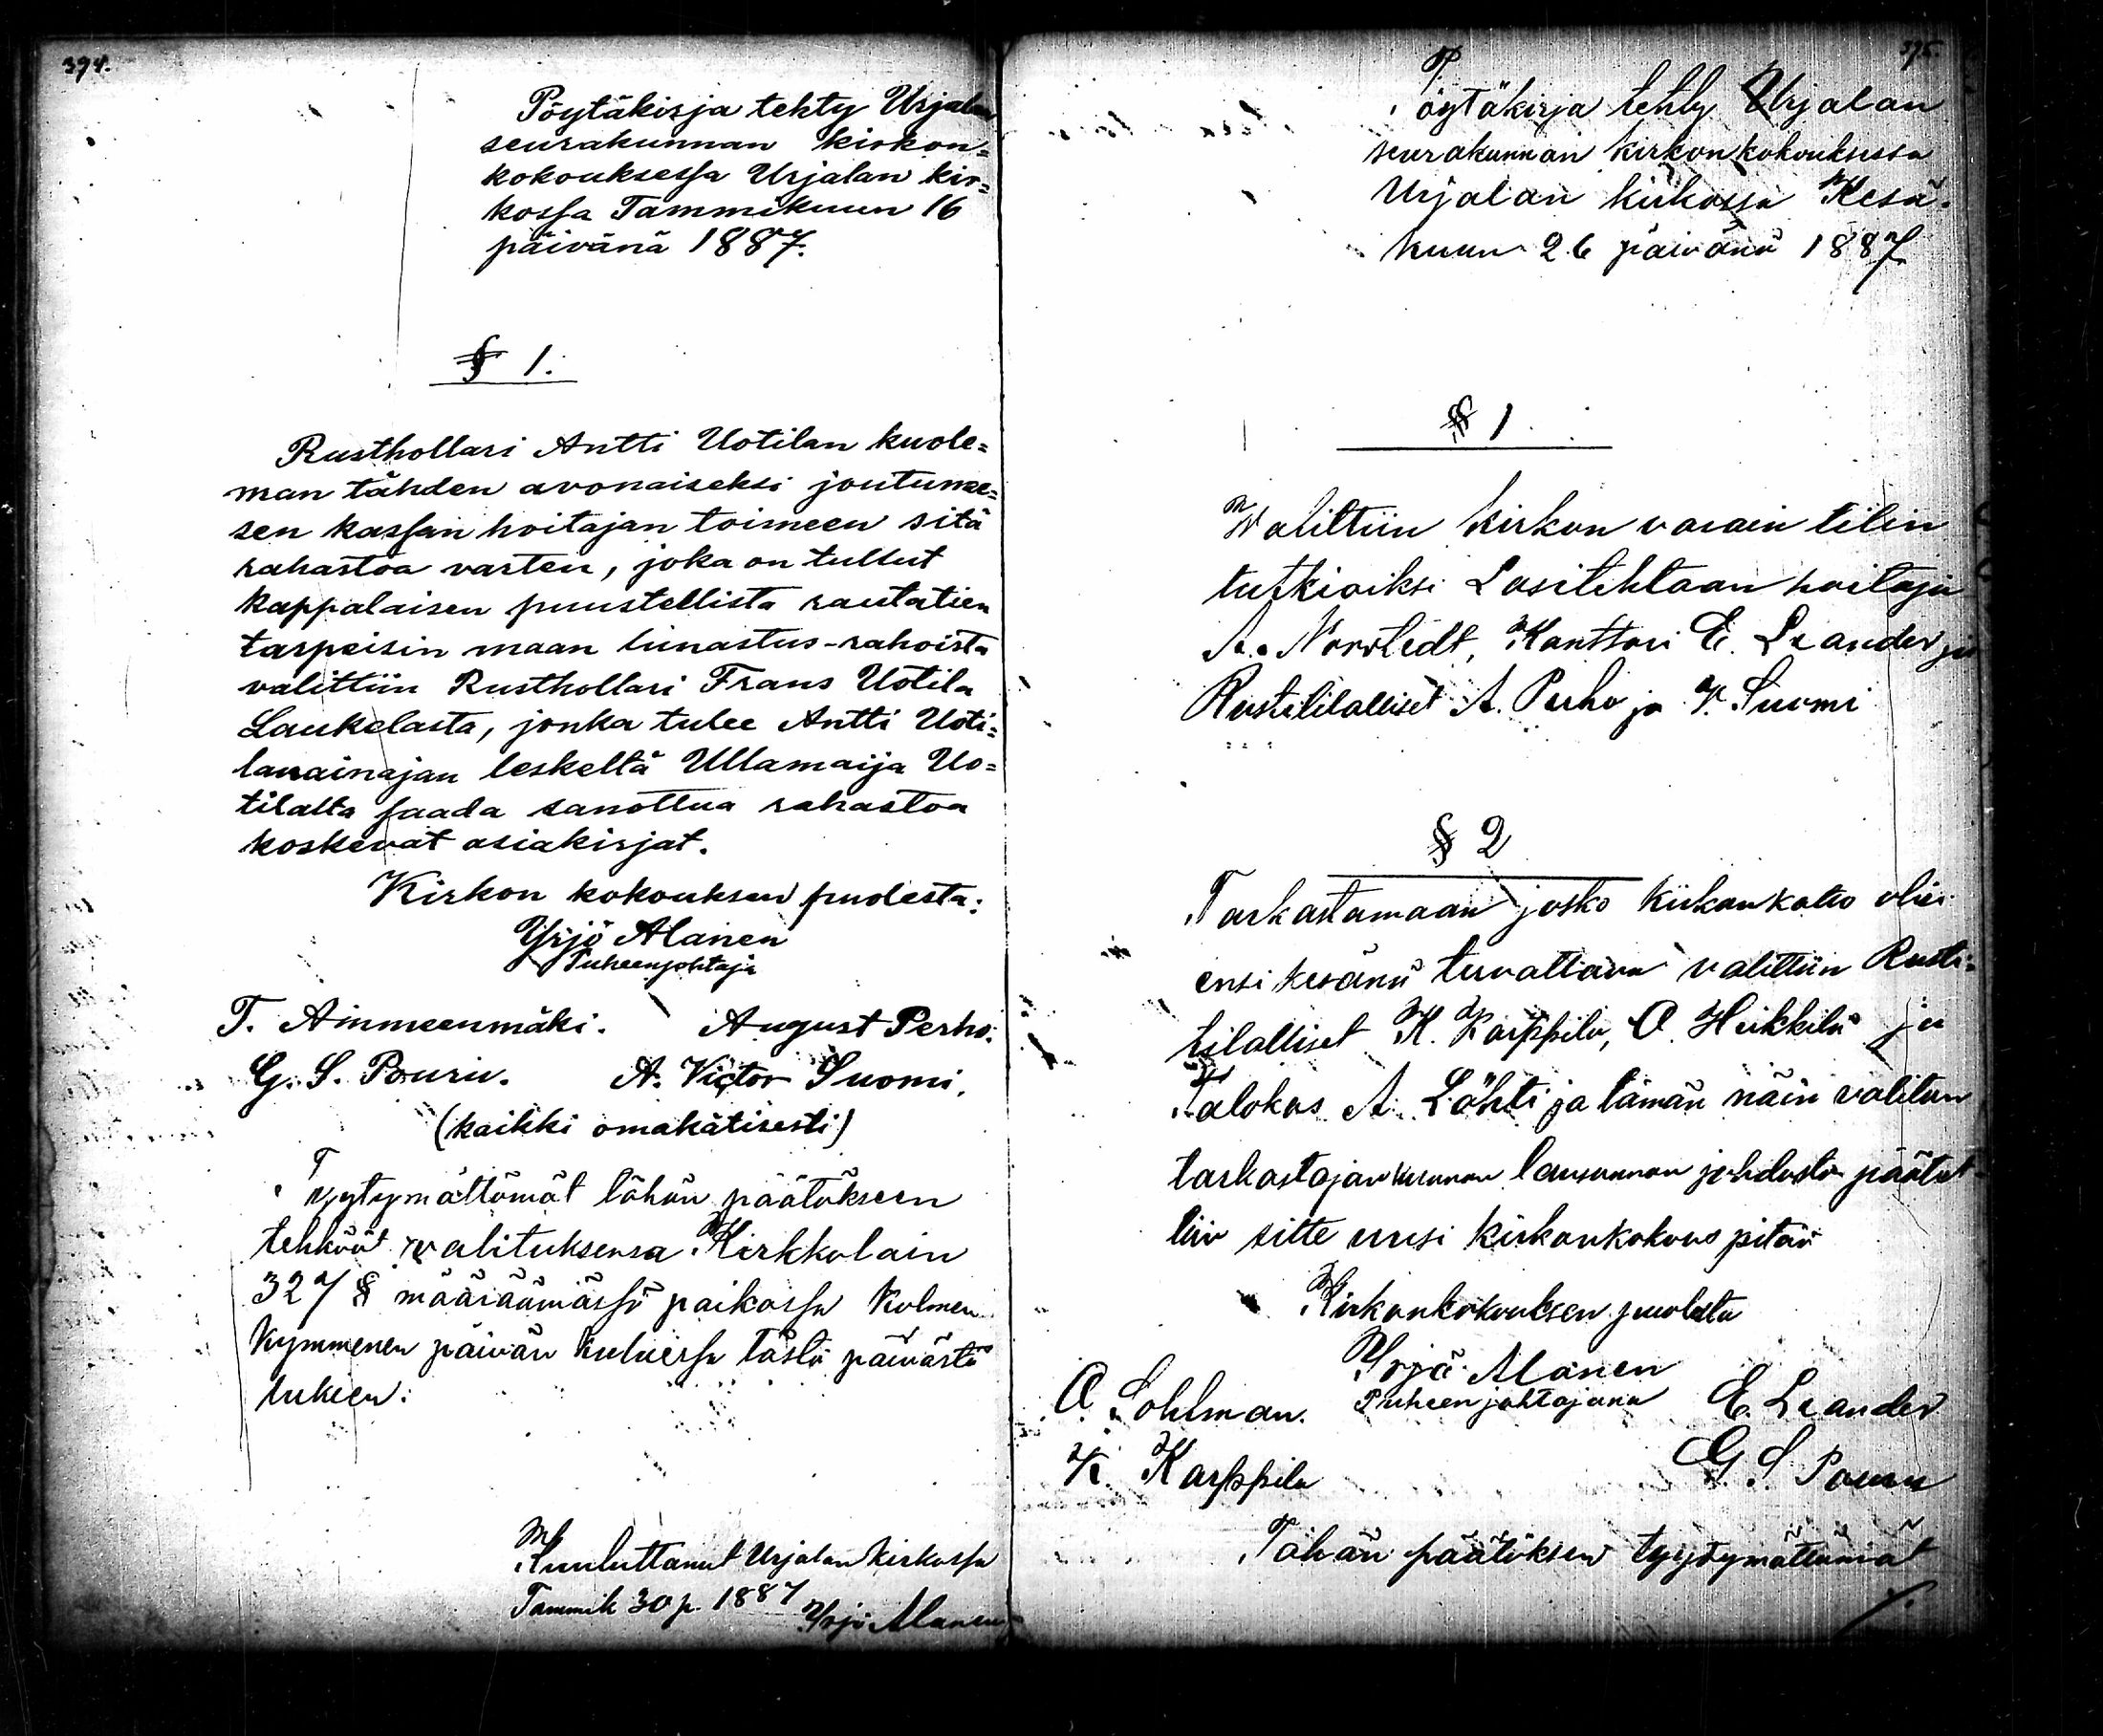 394.
Pöytäkirja tehty Urjalan
seurakunnan kirkon=
kokouksessa Urjalan kir=
kossa Tammikuun 16
päivänä 1887.
§ 1.
Rusthollari Antti Uotilan kuole=
man tähden avonaiseksi joutunee=
sen kassan hoitajan toimeen sitä
rahastoa varten, joka on tullut
kappalaisen puustellista rautatien
tarpeisin maan lunastus-rahoista
valittiin Rusthollari Frans Uotila
Laukelasta, jonka tulee Antti Uoti=
lanainajan leskeltä Ullamaija Uo=
tilalta saada sanottua rahastoa
koskevat asiakirjat.
Kirkon kokouksen puolesta:
Yrjö Alanen
Puheenjohtaja
T. Ammeenmäki. August Perho.
G. S. Pouru. A. Victor Suomi.
(kaikki omakätisesti)
Tyytymättömät tähän päätökseen
tehkööt valituksensa Kirkkolain
327 § määräämässä paikassa kolmen
kymmenen päivän kuluessa tästä päivästä
lukien.
Kuuluttanut Urjalan kirkossa
Tammik 30 p. 1887 Yrjö Alanen
395.
Pöytäkirja tehty Urjalan
seurakunnan kirkonkokouksessa
Urjalan kirkossa Kesä-
kuun 26 päivänä 1887
§ 1.
Walittiin kirkon varain tilin
tutkioiksi Lasitehtaan hoitaja
A. Norstedt, Kanttori E. Leander ja
Rustitilalliset A. Perho ja V. Suomi
§ 2
Tarkastamaan josko kirkonkatto olisi
ensi kesänä tervattava valittiin Rusti-
tilalliset K. Karppila, O. Heikkilä ja
Talokas A. Lähti ja tämän näin valitun
tarkastajankunnan lausunnon johdosta päätet-
tiin sitte uusi kirkonkokous pitää
Kirkonkokouksen puolesta
Yrjö Alanen
O. Lohlman. Puheenjohtajana E. Leander
K. Karppila G. S. Pouru
Tähän päätöksen tyytymättömät
/.